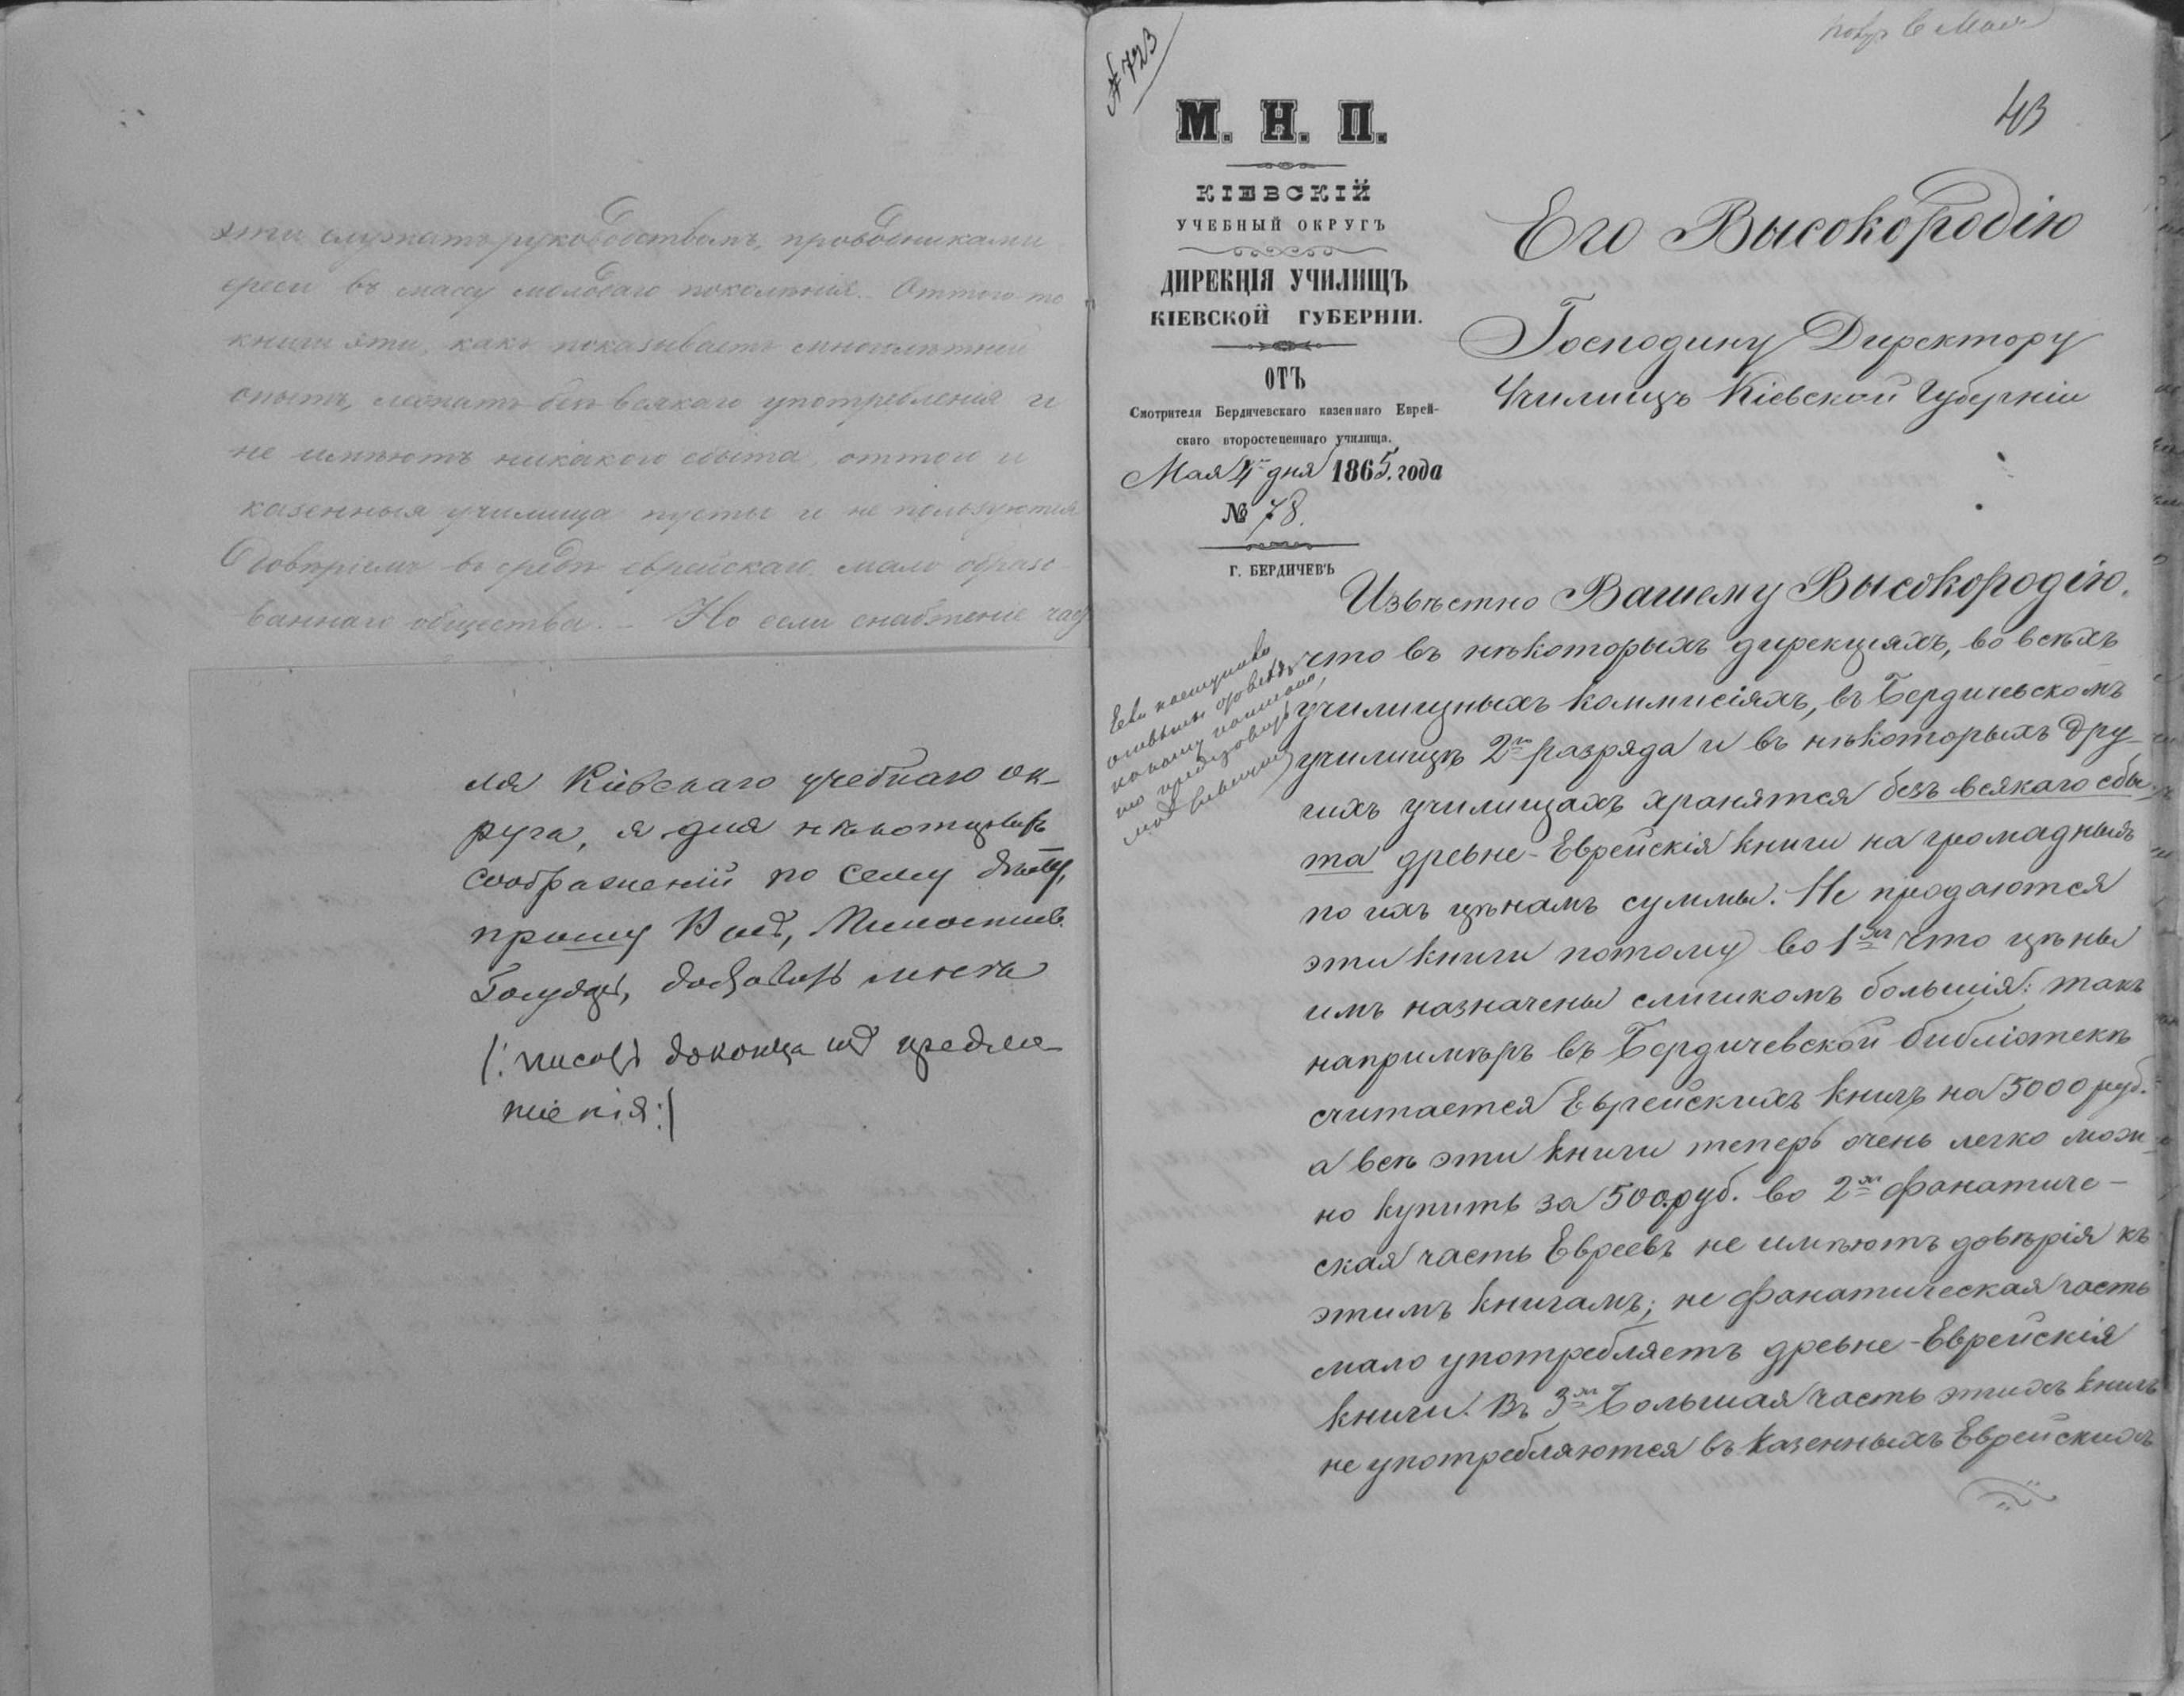 эти служатъ руководствомъ, проводниками
ереси въ массу молодаго поколѣнія. Оттого то
книги эти, какъ показываетъ многолѣтній
опытъ, лежатъ безъ всякаго употребленія и
не имѣютъ никакого сбыта, оттого и
казенныя училища пусты и не пользуются
довѣріемъ въ средѣ еврейскаго мало образо-
ваннаго общества. - Но если снабженіе
ля Кіевскаго учебнаго ок-
руга, я для нѣкоторыхъ
соображеній по сему
прошу Васъ, Милостив.
Государь, доставить мнѣ
предло-
женія:/
№ 723
43
М. Н. П.
КІЕВСКІЙ
УЧЕБНЫЙ ОКРУГЪ
ДИРЕКЦІЯ УЧИЛИЩЪ
КІЕВСКОЙ ГУБЕРНІИ.
ОТЪ
Смотрителя Бердичевскаго казеннаго Еврей-
скаго второстепеннаго училища.
Мая 4 дня 1865. года
№ 78.
Г. БЕРДИЧЕВЪ
Его Высокородію
Господину Директору
Училищъ Кіевской Губерніи
Извѣстно Вашему Высокородію,
что въ нѣкоторыхъ дирекціяхъ, во всѣхъ
училищныхъ коммисіяхъ, въ Бердичевскомъ
училищѣ 2го разряда и въ нѣкоторыхъ дру-
гихъ училищахъ хранятся безъ всякаго сбы-
та древне-Еврейскія книги на громадныя
по ихъ цѣнамъ суммы. Не продаются
эти книги потому во 1хъ что цѣны
имъ назначены слишкомъ большія: такъ
напримѣръ въ Бердичевской библіотекѣ
считается Еврейскихъ книгъ на 5000 руб.
а всѣ эти книги теперь очень легко мож-
но купить за 500 руб. во 2хъ фанатиче-
ская часть Евреевъ не имѣютъ довѣрія къ
этимъ книгамъ; не фанатическая часть
мало употребляетъ древне-Еврейскія
книги. Въ 3хъ Большая часть этихъ книгъ
не употребляются въ казенныхъ Еврейскихъ